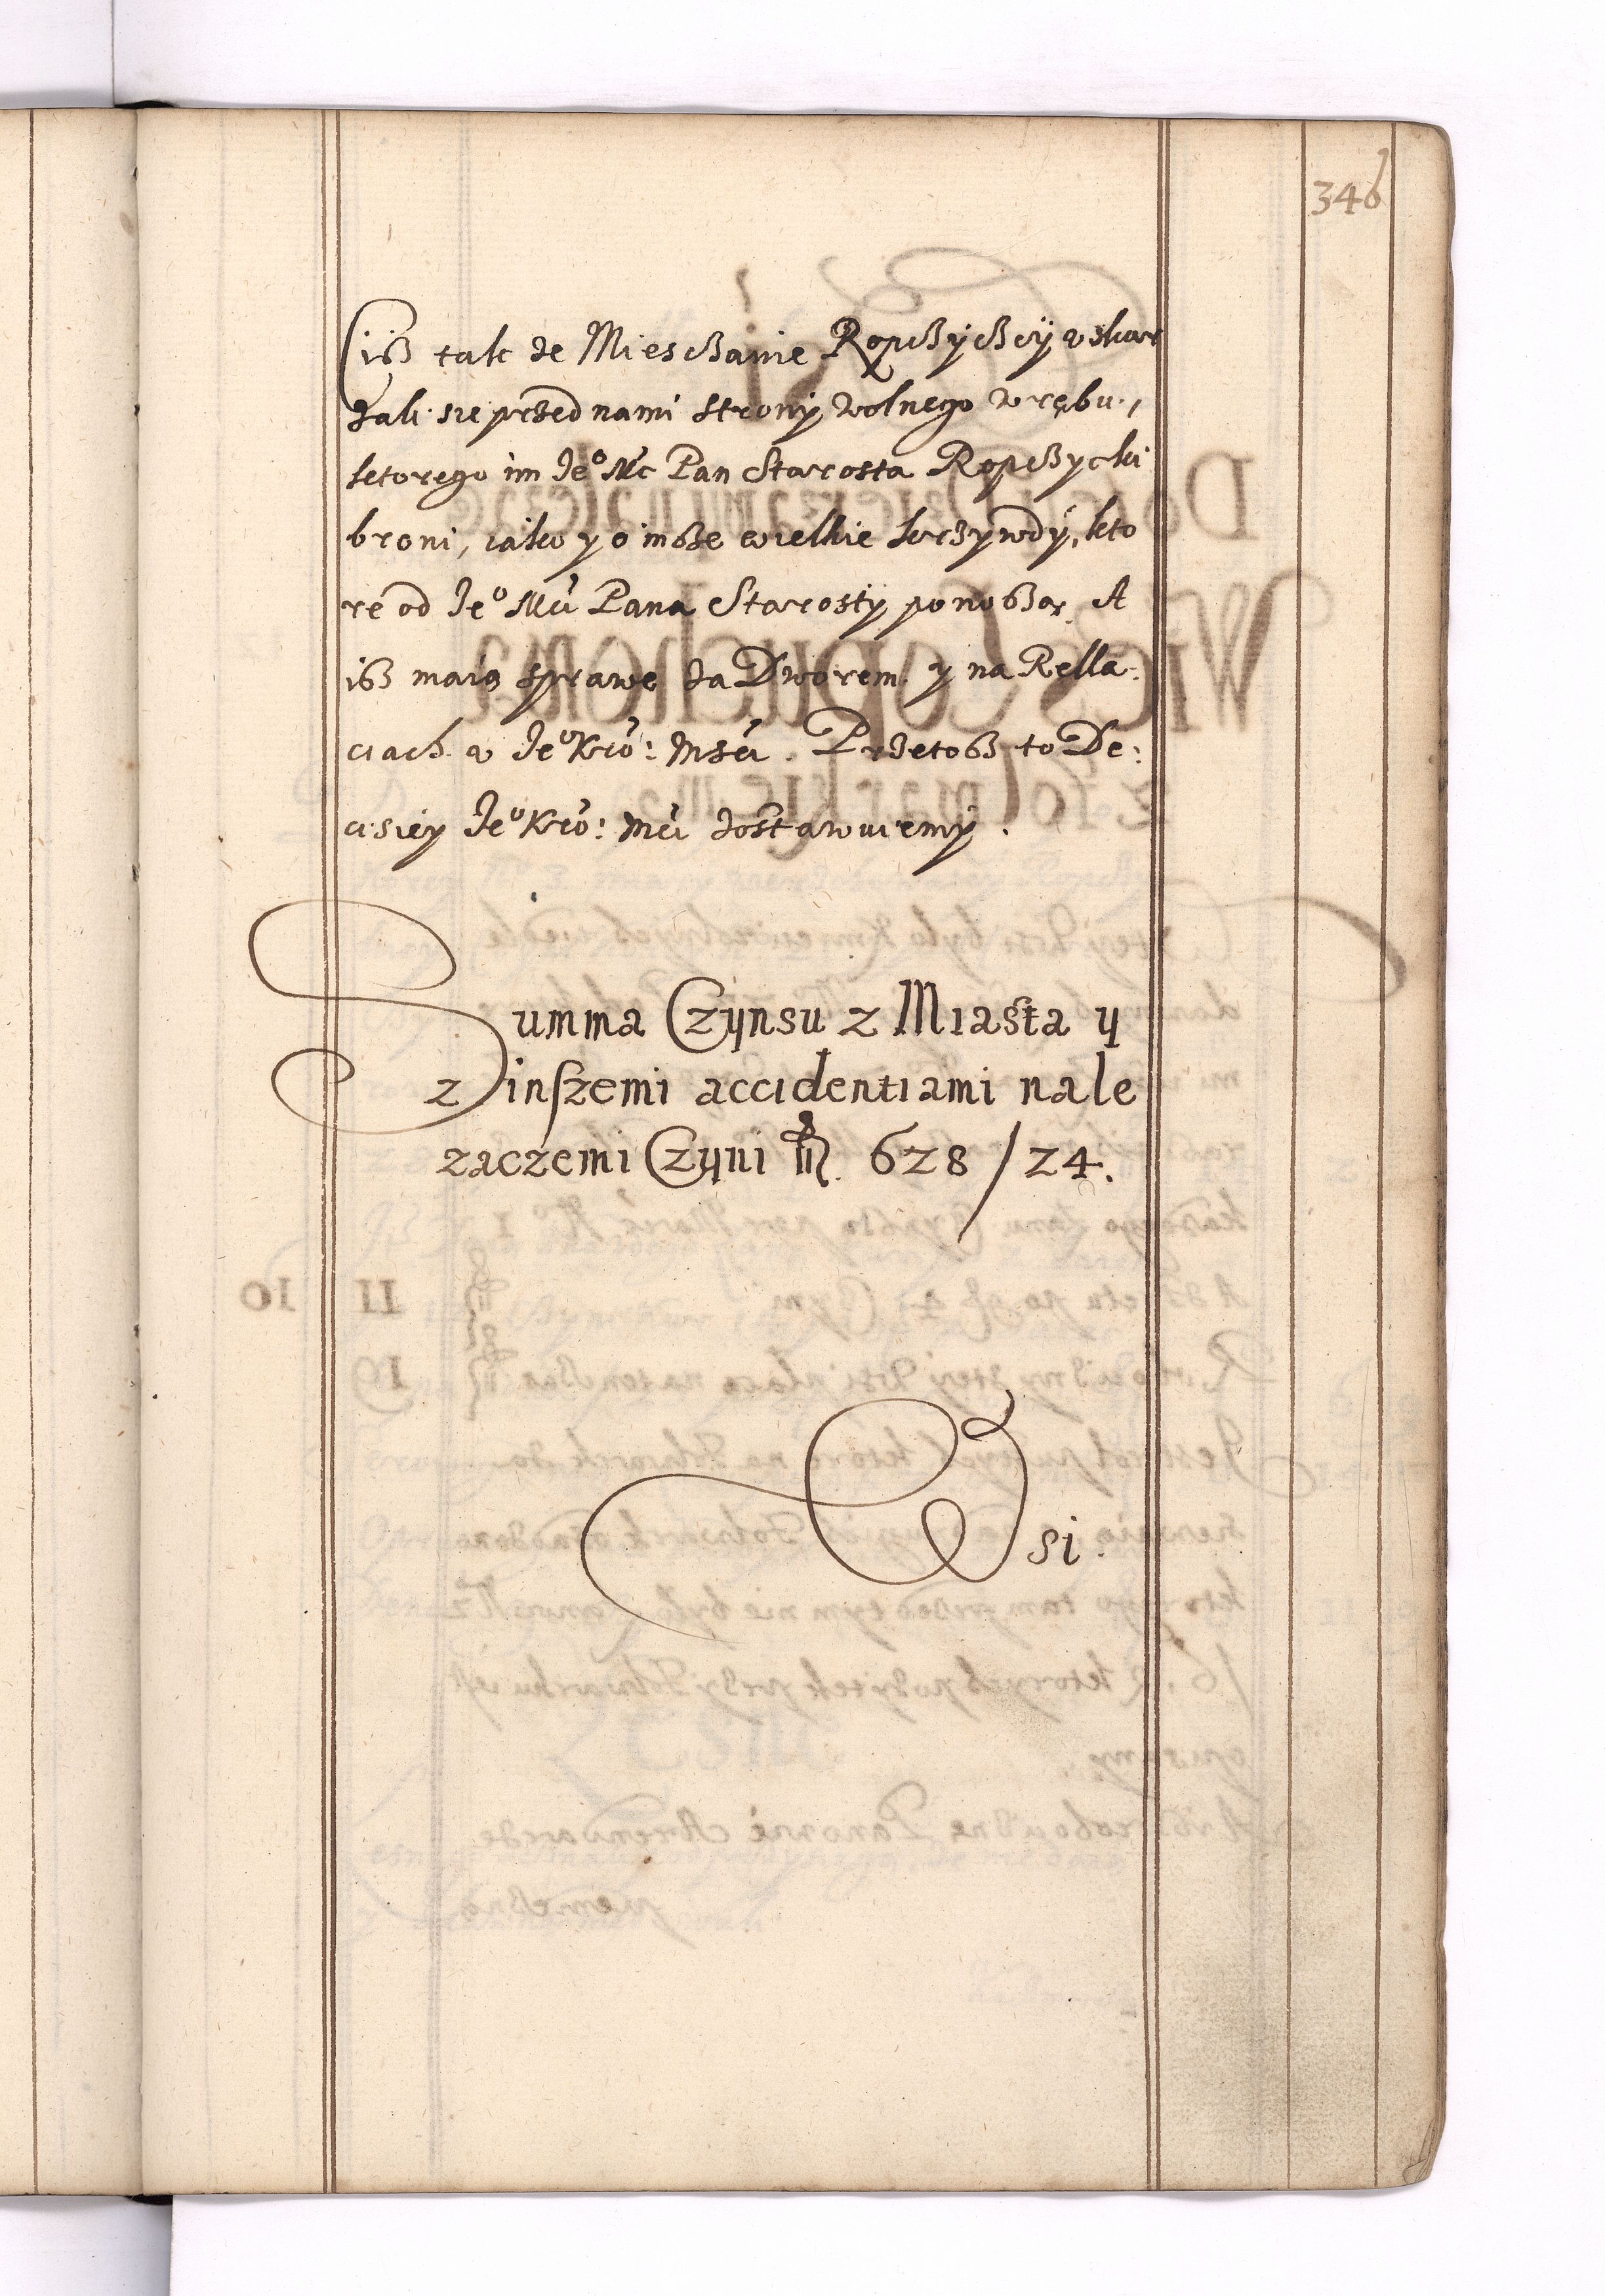 346
Ciß takze Miesczanie Ropczyczcÿ vskar
zali sie przed nami strony wolnego wrębu,
ktorego im Jeº Mc Pan Starosta Ropczycki
broni, iako y o insze wielkie krzywdy, kto
re od Jeº Mci Pana Starosty ponoszą. A
iß maią sprawę za Dworem y na Rella:
ciach v Jeº Kró: Mści. Przetoß to De:
cisiey Jeº Kró: Mci zostawuiemy.
Summa Czynsu z Miasta y
z inszemi accidentiami nale
zaczemi Czyni 628/24.
Wsi.